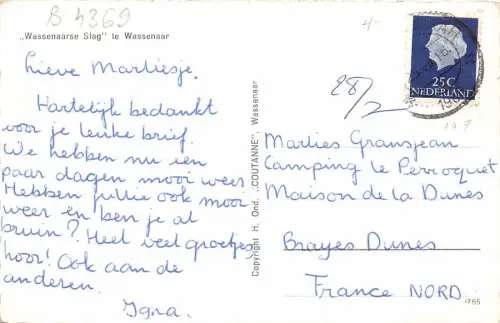 B 4369
„Wassenaarse Slag" te Wassenaar
Lieve Marliesje.
Hartelijk bedankt
voor je leuke brief.
We hebben nu een
paar dagen mooi weer.
Hebben jullie ook mooi
weer en ben je al
bruin? Heel veel groetjes
hoor! Ook aan de
anderen.
Igna.
Copyright H. Ond. „COUTANNE", Wassenaar
25C
NEDERLAND
28/2
Marlies Gransjean
Camping Le Perroquet
Maison de la Dunes
Brayes Dunes
France NORD